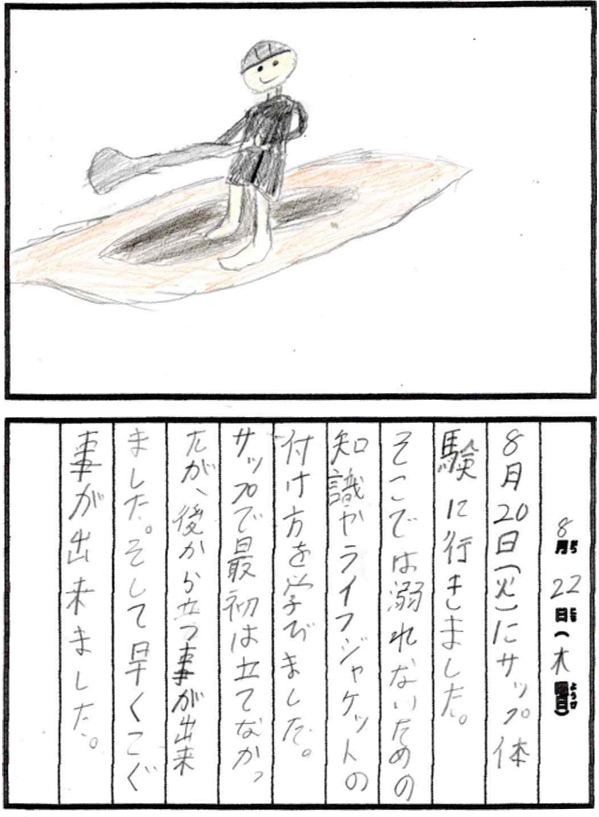 8月22日(木曜日)
8月20日(火)にサップ体
験に行きました。
そこでは溺れないための
知識やライフジャケットの
付け方を学びました。
サップで最初は立てなかっ
たが、後から立つ事が出来
ました。そして早くこぐ
事が出来ました。